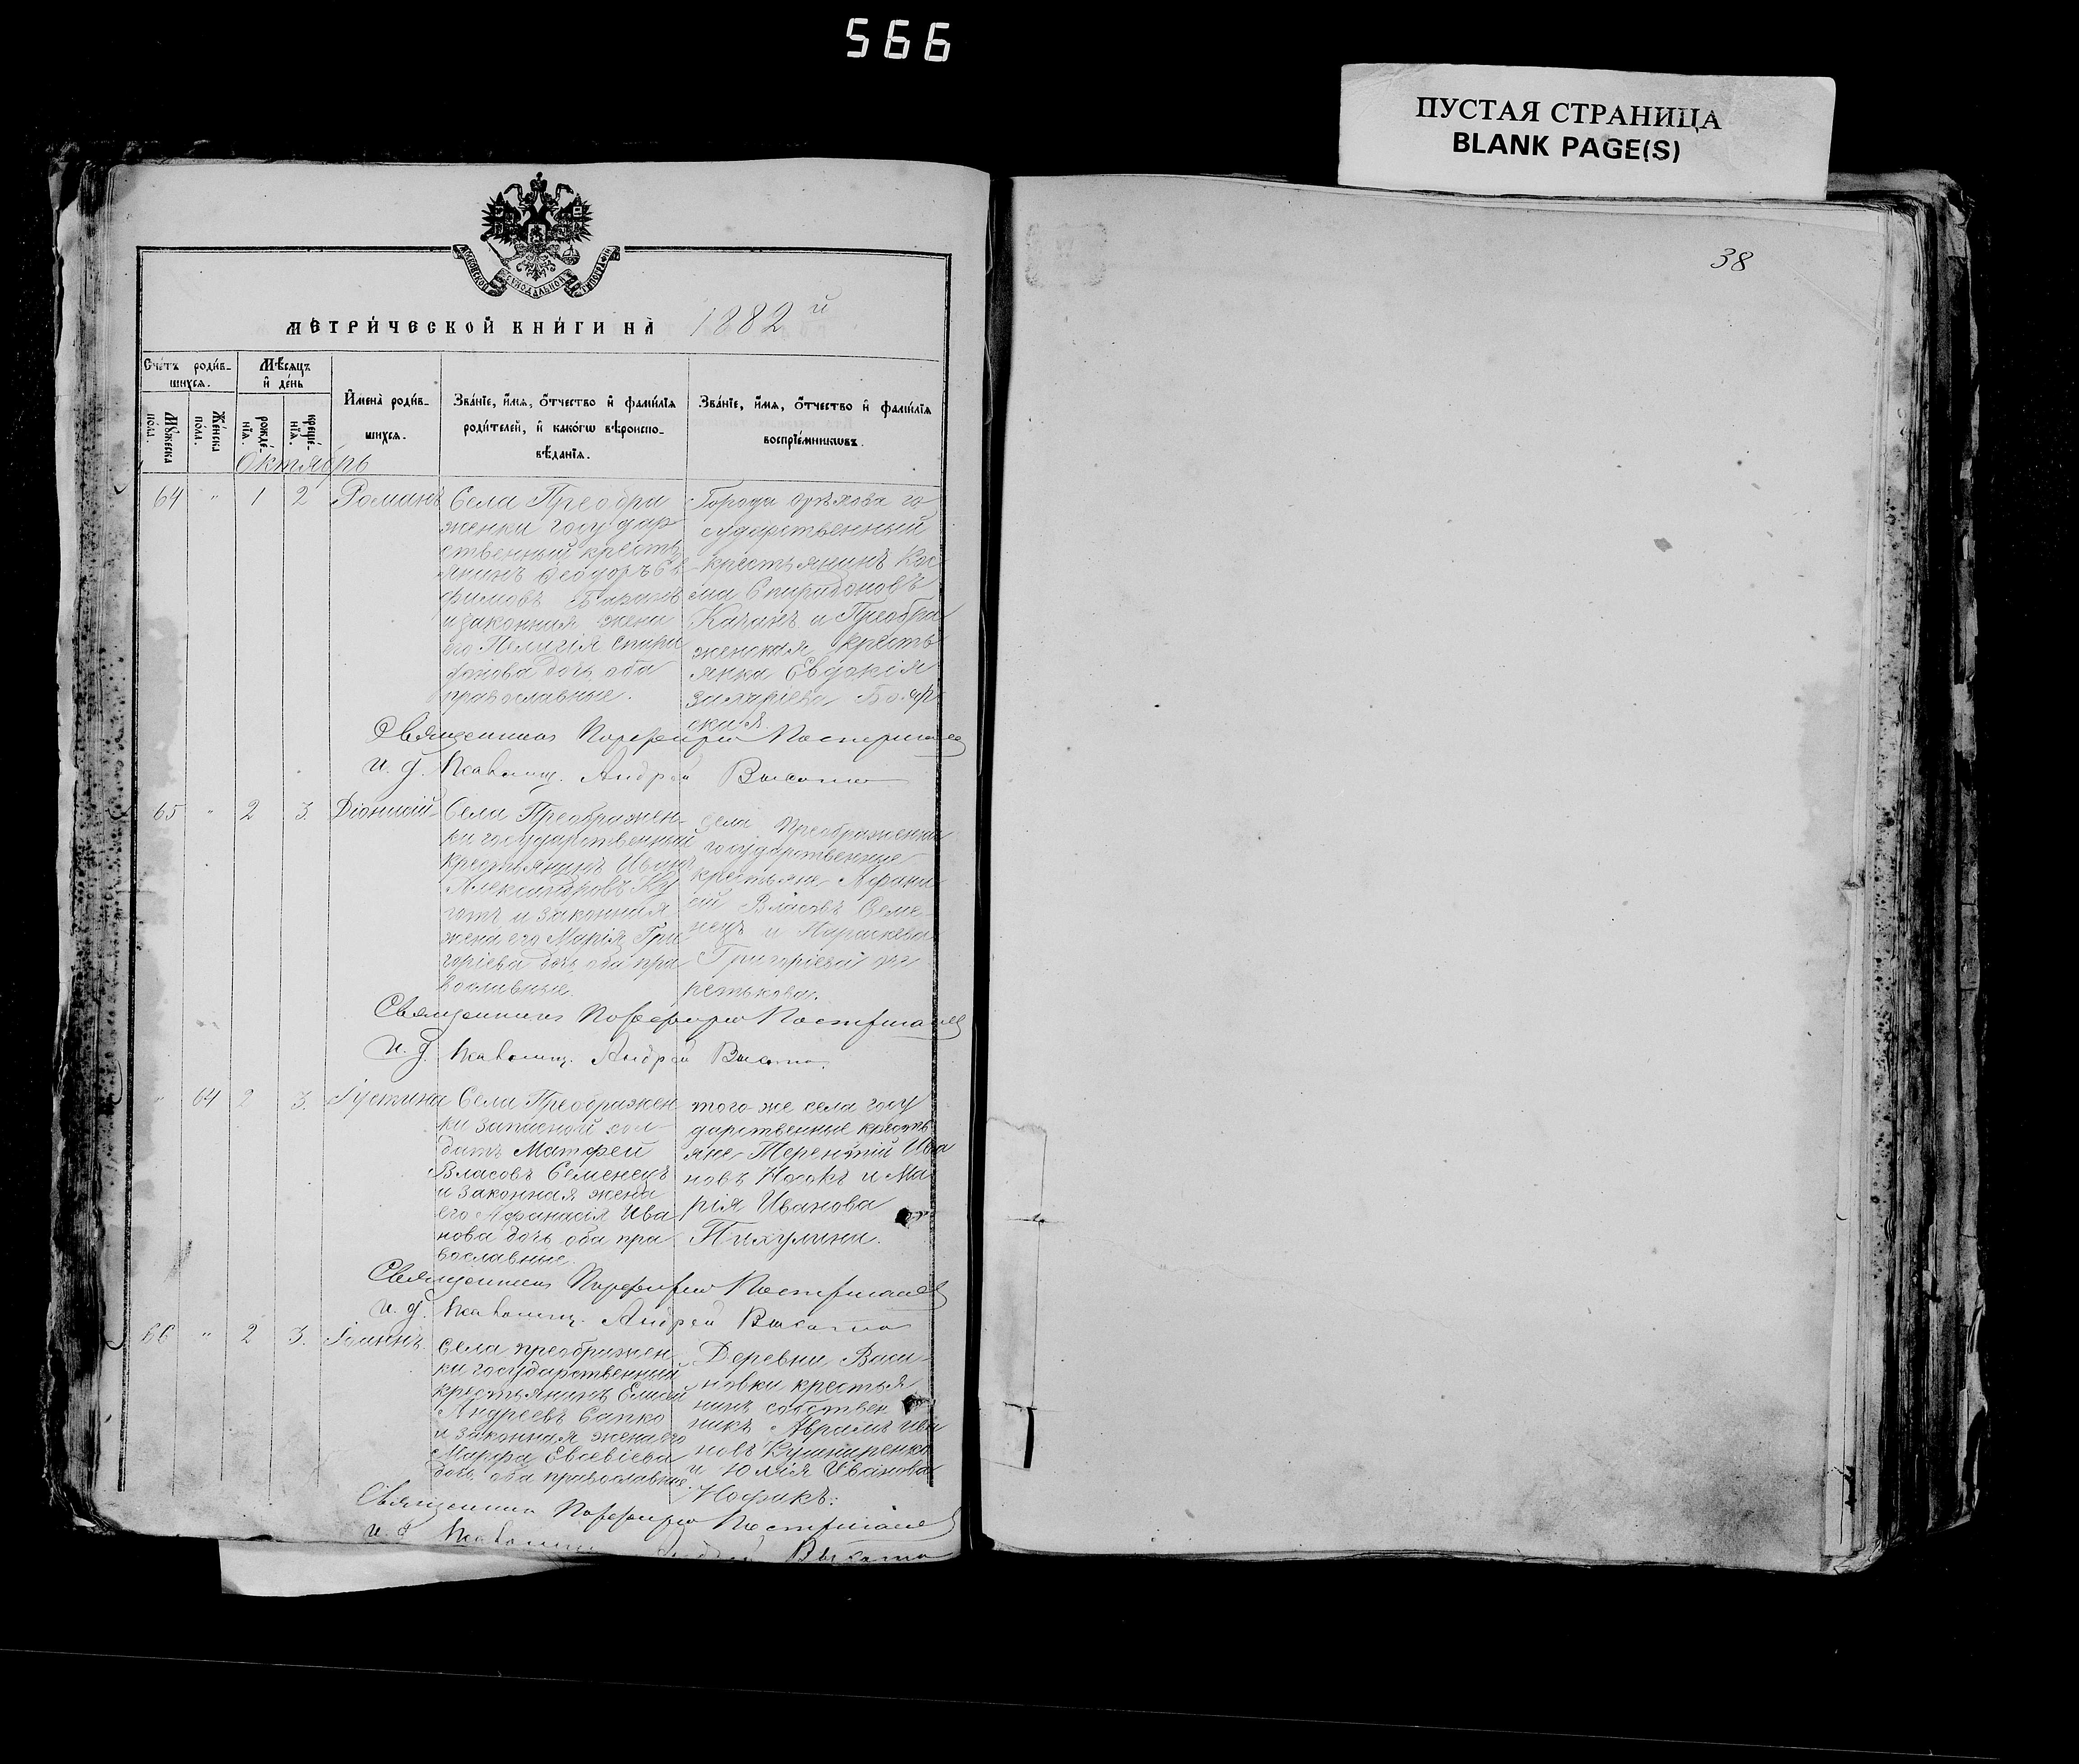 566
ПУСТАЯ СТРАНИЦА
BLANK PAGE(S)
38
МОСКОВСКОЙ СѴНОДАЛЬНОЙ ТИПОГРАФІИ
МЕТРИ́ЧЕСКОЙ КНИ́ГИ НА̀ 1882 й
Сче́тъ роди́в-
шихсѧ.
Мꙋ́жеска по́ла.
Же́нска по́ла.
Мѣ́сѧцъ
и҆ де́нь
рожде́-
нїѧ.
креще́-
нїѧ.
И҆мена̀ роди́в-
шихсѧ.
Зва́нїе, и҆́мѧ, ѻ҆́тчество и҆ фами́лїѧ
роди́телей, и҆ како́гѡ вѣроиспо-
вѣ́данїѧ.
Зва́нїе, и҆́мѧ, ѻ҆́тчество и҆ фами́лїѧ
воспрїе́мникѡвъ.
Октябрь
64 " 1 2 Романъ
Села Преобра
женки государ
ственный кресть
янинъ Феодоръ Ев
фимовъ
и законная жена
его Пелагія Спири
донова дочь, оба
православные.
Города Орѣхова го
сударственный
крестьянинъ Кос
ма Спиридоновъ
Качанъ и Преобра
женская кресть
янка Евдокія
Захаріева Бояр
ская.
Священникъ Порфирій
и. д. Псаломщ. Андрей Высота
65 " 2 3. Діонисій
Села Преображен-
ки государственный
крестьянинъ Иванъ
Александровъ
и законная
жена его Марія Гри
горіева дочь, оба пра
вославные.
села Преображенки
государственные
крестьяне Афана
сій Власовъ Семе
нецъ и Параскева
Григоріева
Священникъ Порфирій
и. д. Псаломщ. Андрей Высота.
" 64 2 3. Іустина
Села Преображен
ки запасной сол-
датъ Матфей
Власовъ Семенецъ
и законная жена
его Афанасія Ива
нова дочь оба пра
вославные.
того-же села госу
дарственные кресть
яне Терентій Ива
новъ Носокъ и Ма
рія Иванова
Пихулина.
Священникъ Порфирій
и. д. Псаломщ. Андрей Высота
66 " 2 3. Іоаннъ.
Села Преображен
ки государственный
крестьянинъ Елисей
Андреевъ Сапко
и законная жена его
Марфа Евсевіева
дочь, оба православные.
Деревни Васи-
новки крестья
нинъ собствен
никъ Аврамъ Ива
новъ Кушниренко
и Юлія Иванова
Священникъ Порфирій
и. д. Псаломщ. Андрей Высота